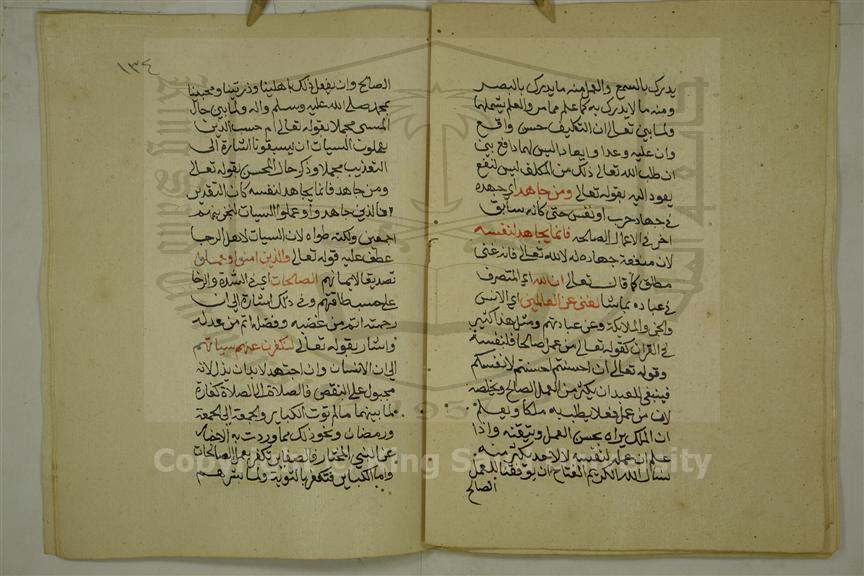 يدرك بالسمع والعلم منه ما يدرك بالبصر
ومنه ما لا يدرك به كما علم مما مر والعلم يشملهما
ولما بين تعالى ان التكليف حسن واقع
وان عليه وعدا وايعادا ليس لهما دافع بين
ان طلب الله تعالى ذلك من المكلف ليس لنفع
يعود اليه بقوله تعالى ومن جاهد اي جهده
في جهاد حرب او نفس حتى كانه سابق
اخر في الاعمال الصالحه فانما يجاهد لنفسه
لان منفعة جهاده له لا لله تعالى فانه غني
مطلق كما قال تعالى ان الله اي المتصرف
في عباده بما شا لغني عن العالمين اي الانس
والجن والملائكة وعن عبادتهم ومثل هذا كثير
في القران كقوله تعالى من عمل صالحا فلنفسه
وقوله تعالى ان احسنتم احسنتم لانفسكم
فينبغي للعبد ان يكثر من العمل الصالح ويخلصه
لان من عمل فعلا يطلب به ملكا ويعلم
ان الملك يراه يحسن العمل ويتقنه واذا
علم ان عمله لنفسه لا لاحد يكثر منه
نسال الله الكريم الفتاح ان يوفقنا للعمل
الصالح
١٣٤
الصالح وان يفعل ذلك باهلينا وذريتنا ومحبينا
بمحمد صلى الله عليه وسلم واله ولما بين حال
المسي مجملا بقوله تعالى ام حسب الذين
يعملون السيات ان يسبقونا اشارة الى
التعذيب مجملا وذكر حال المحسن بقوله تعالى
ومن جاهد فانما يجاهد لنفسه كان التقدير
فالذين جاهدوا وعملوا السيات لنجزينهم
اجمعين ولكنه طواه لان السيات لاهل الرجا
عطف عليه قوله تعالى والذين امنوا وعملوا
تصديقا لايمانهم الصالحات اي في الشدة والرخا
على حسب طاقتهم وفي ذلك اشارة الى ان
رحمته اتم من غضبه وفضله اتم من عدله
واشار بقوله تعالى لنكفرن عنهم سياتهم
الى ان الانسان وان اجتهد لا بد ان يزل لانه
مجبول على النقص فالصلاة الى الصلاة كفارة
لما بينهما ما لم توت الكباير والجمعة الى الجمعة
ورمضان ونحو ذلك مما وردت به الاخبار
عن النبي المختار فالصغاير تكفر بعمل الصالحات
واما الكباير فتكفر بالتوبة ولما بشرهم